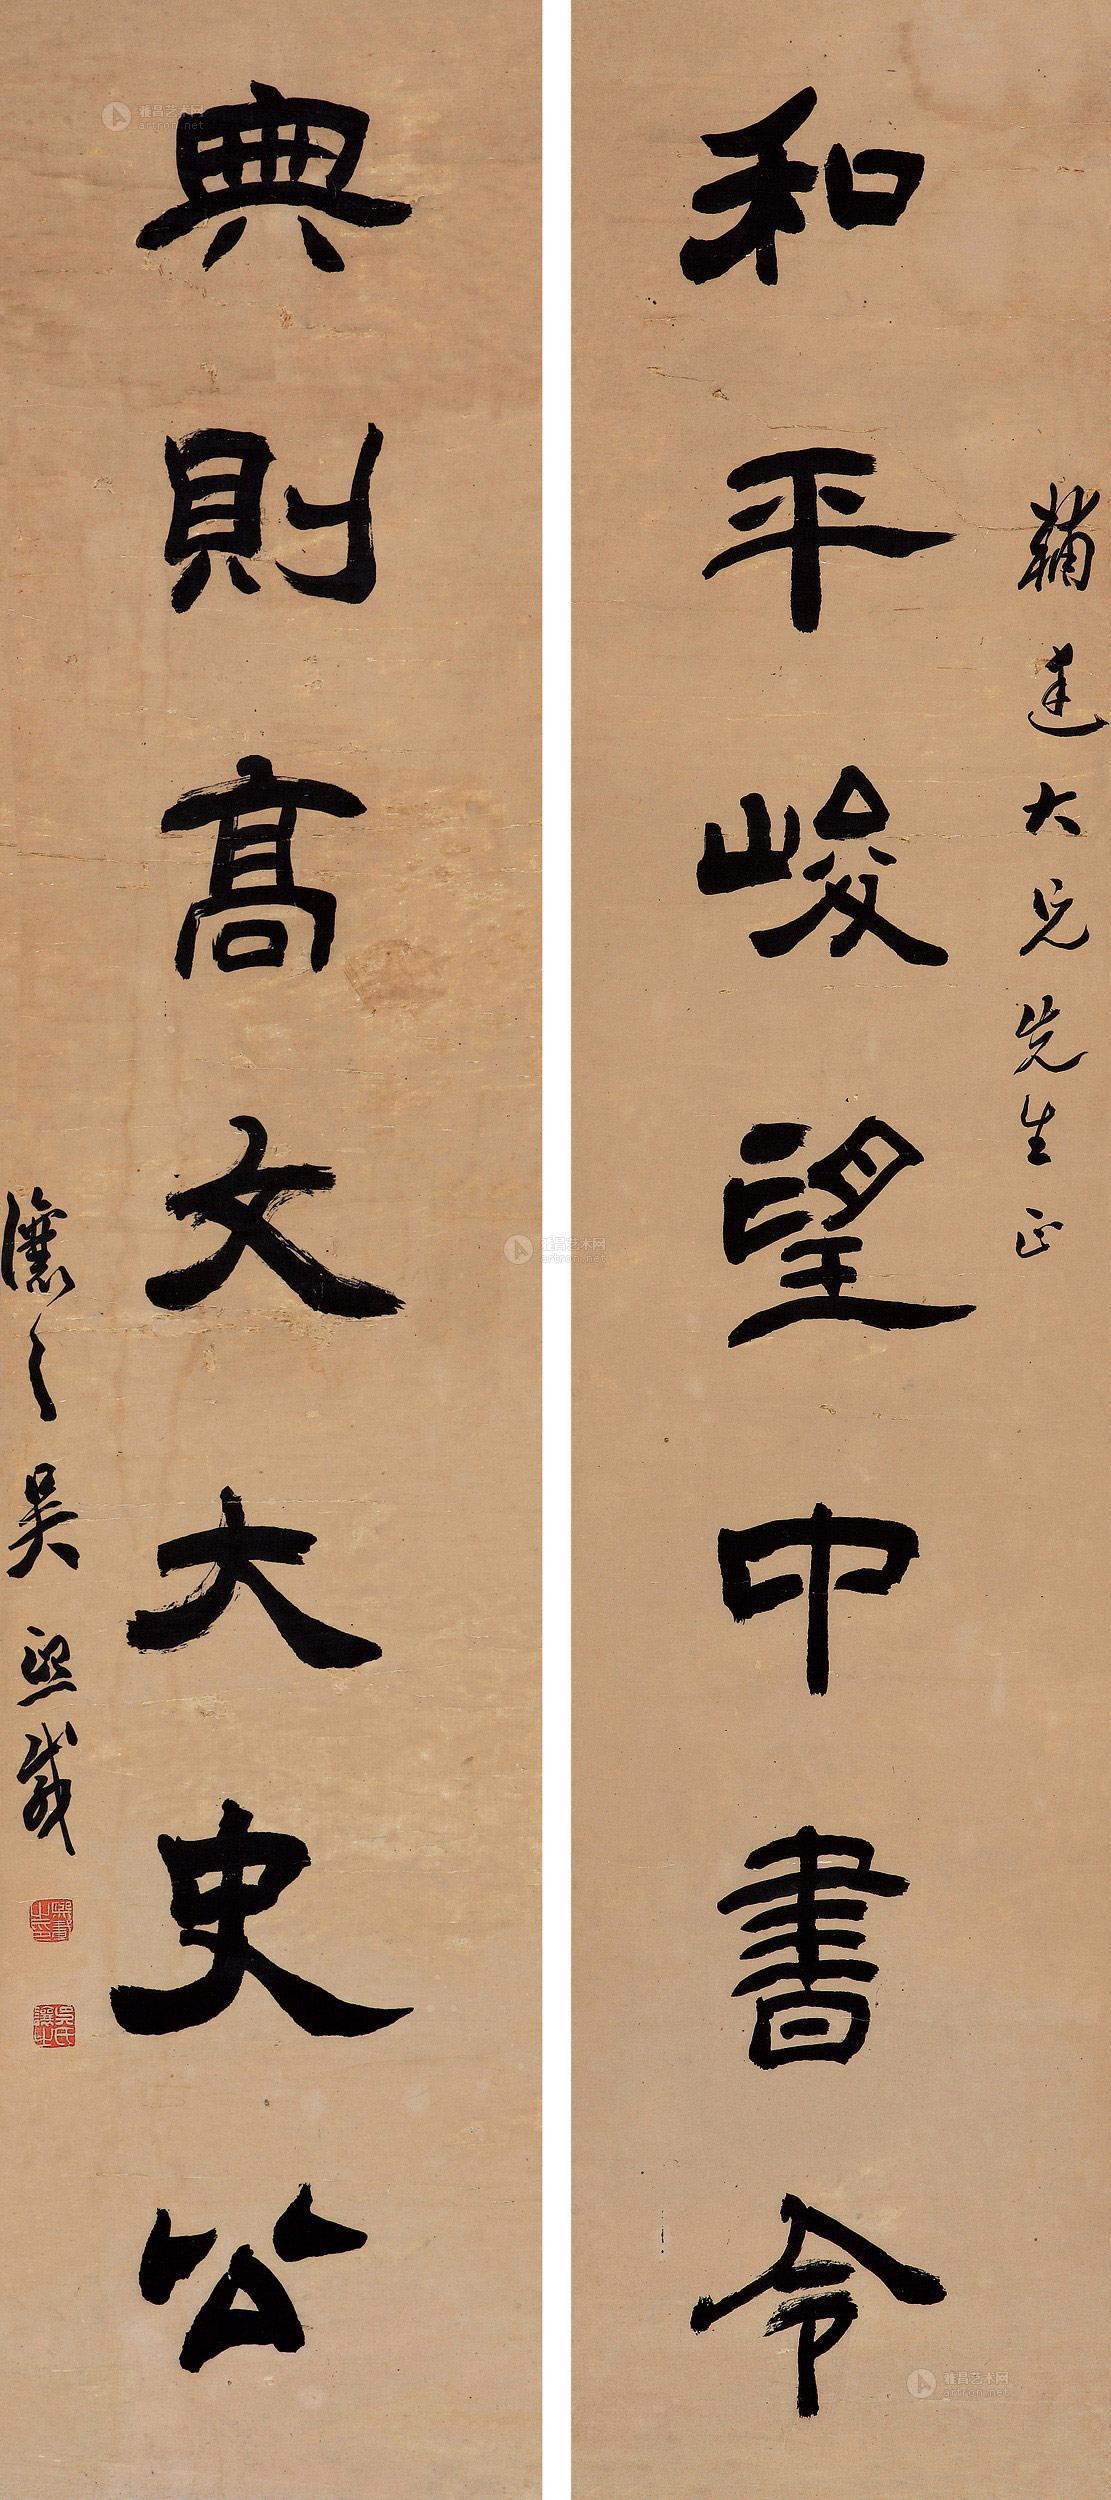 輔廷大兄先生正
和平峻望中書令
典則高文大史公
讓之吳熙載
熙載之印
吳氏讓之
雅昌艺术网
artron.net
雅昌艺术网
artron.net
雅昌艺术网
artron.net